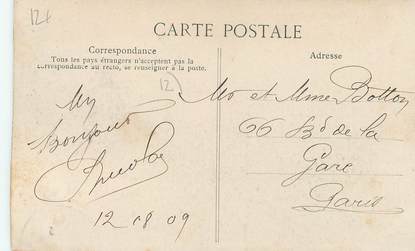 12+
CARTE POSTALE
Correspondance
Tous les pays étrangers n'acceptent pas la
correspondance au recto, se renseigner à la poste.
12
Bonjour
12 08 09
Adresse
Mr et Mme Botton
66 Bd de la
Gare
Paris